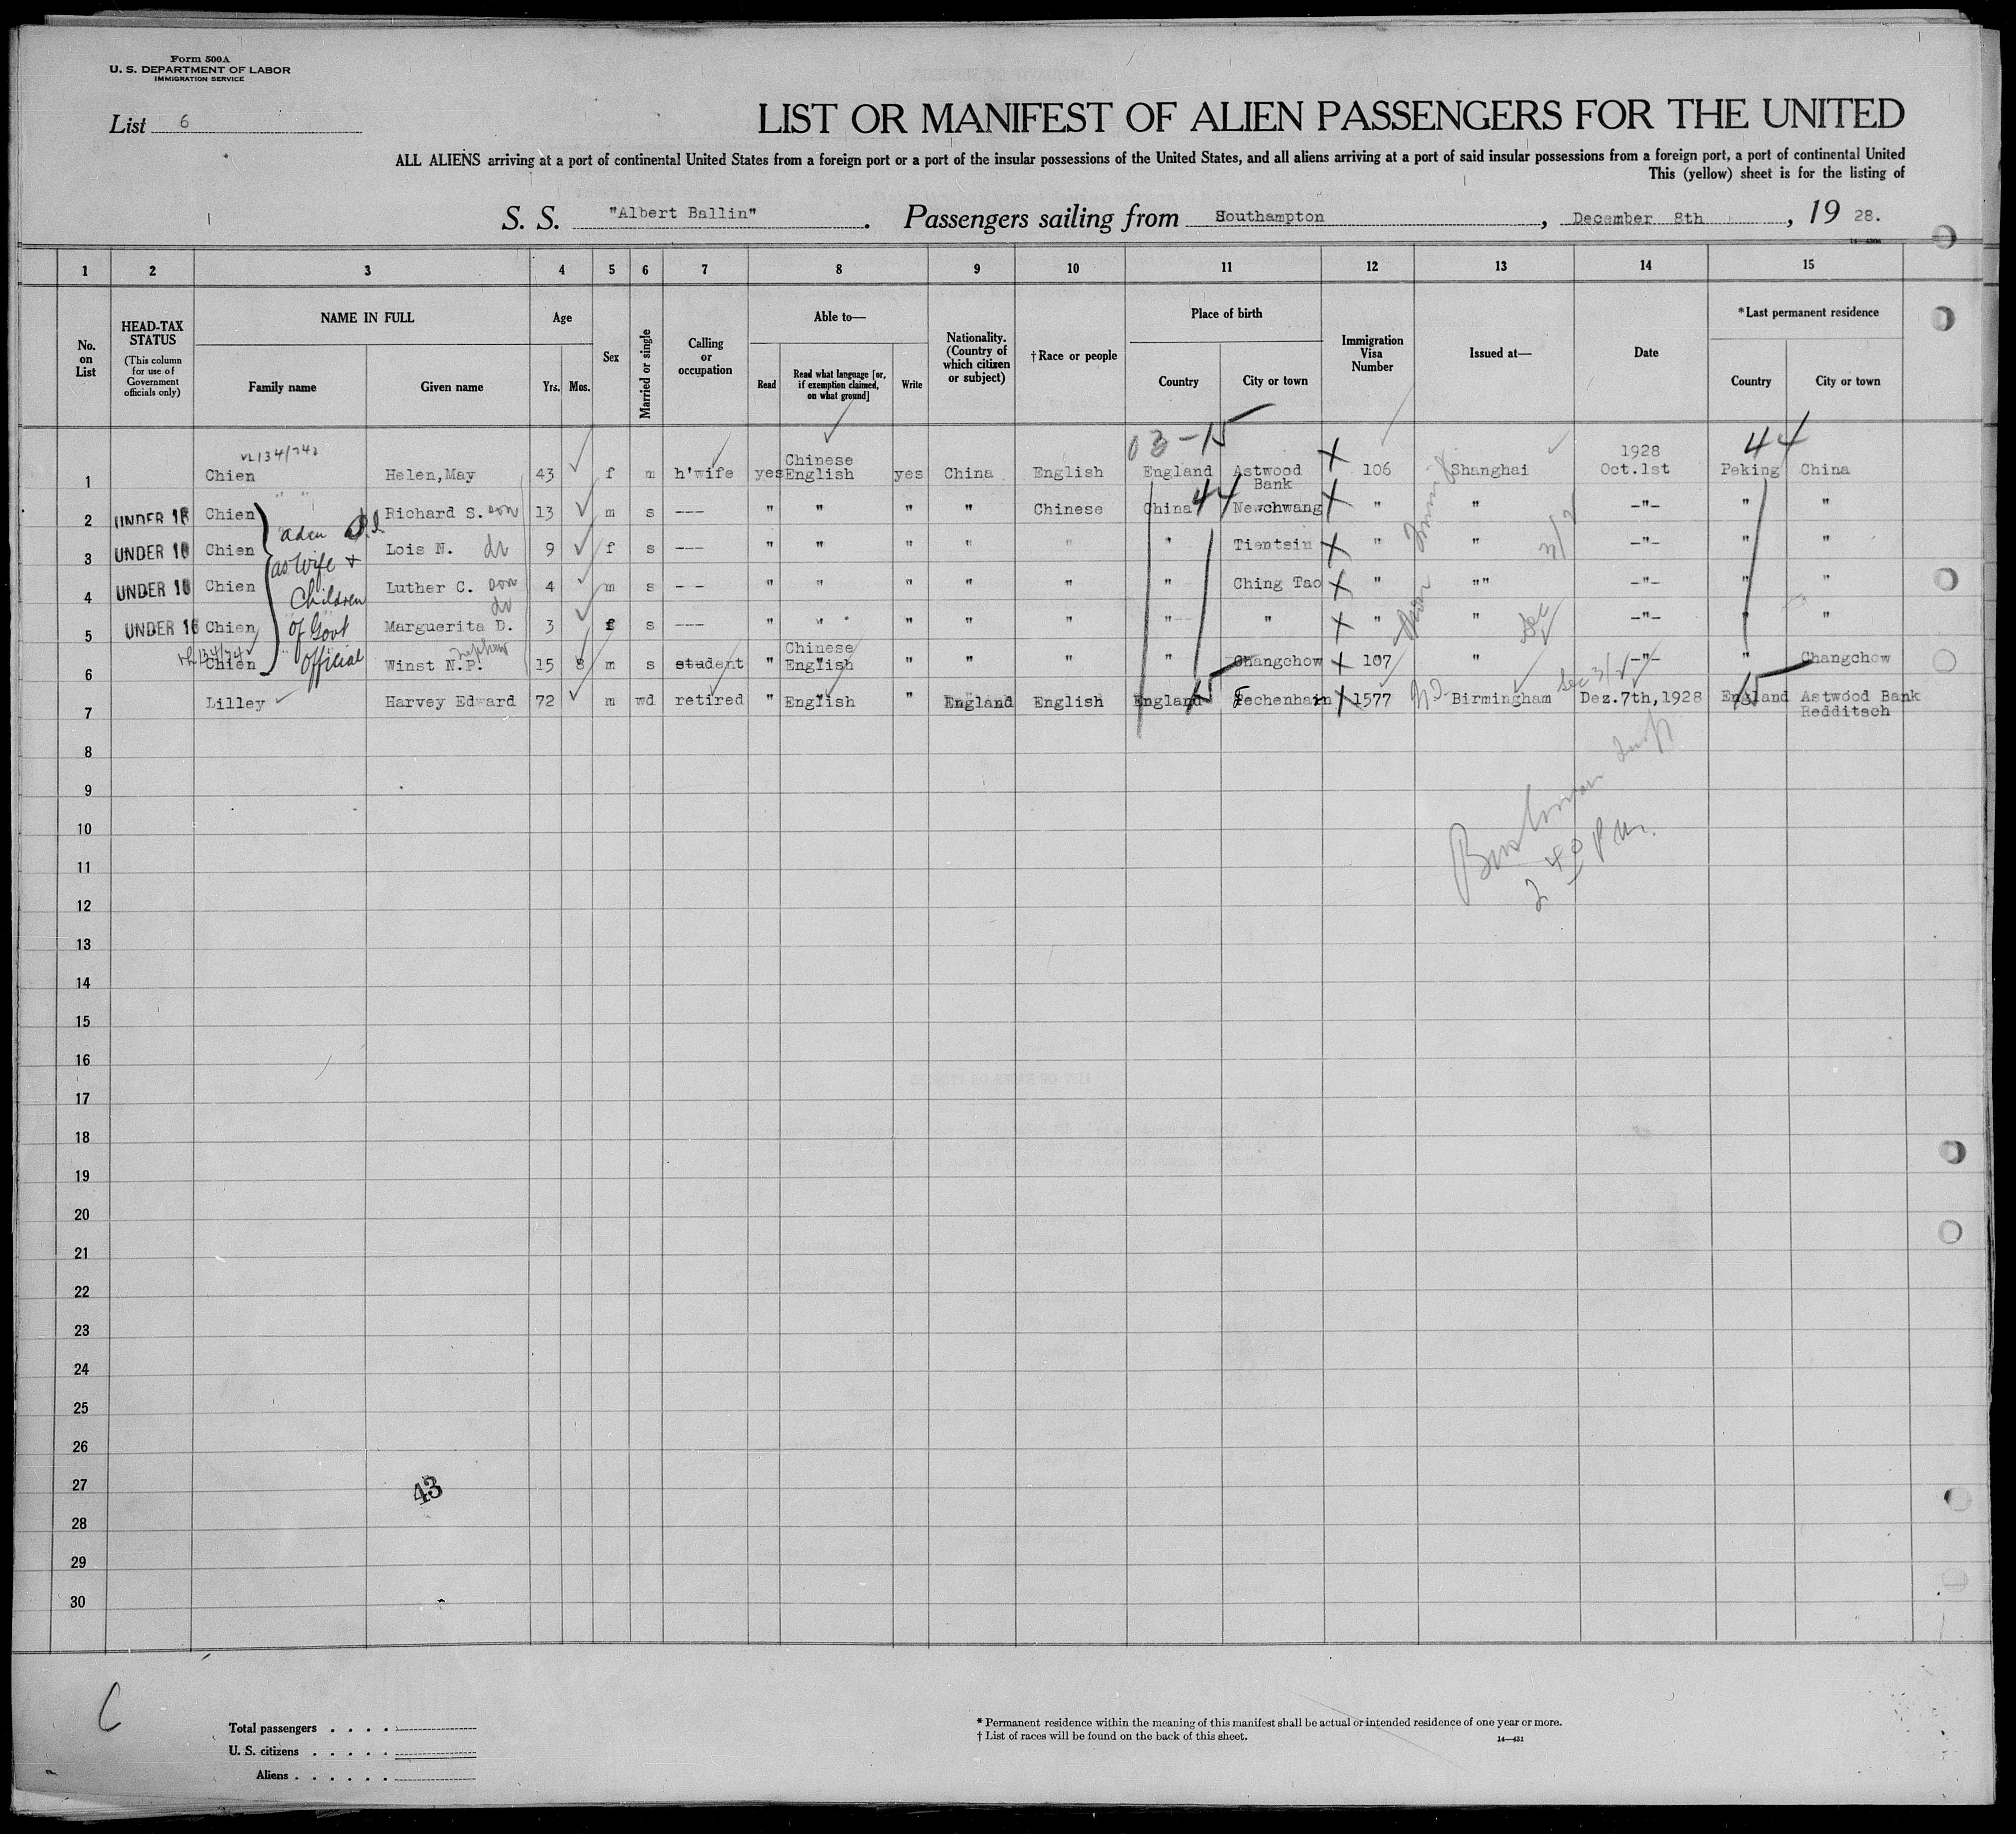 Form 500A
U. S. DEPARTMENT OF LABOR
IMMIGRATION SERVICE
List 6
LIST OR MANIFEST OF ALIEN PASSENGERS FOR THE UNITED
ALL ALIENS arriving at a port of continental United States from a foreign port or a port of the insular possessions of the United States, and all aliens arriving at a port of said insular possessions from a foreign port, a port of continental United
This (yellow) sheet is for the listing of
S. S. "Albert Ballin". Passengers sailing from Southampton, December 8th, 19 28.
14—430a
1 2 3 4 5 6 7 8 9 10 11 12 13 14 15
No. on List
HEAD-TAX STATUS
(This column for use of Government officials only)
NAME IN FULL
Family name Given name
Age
Yrs. Mos.
Sex
Married or single
Calling or occupation
Able to—
Read Read what language [or, if exemption claimed, on what ground] Write
Nationality. (Country of which citizen or subject)
†Race or people
Place of birth
Country City or town
Immigration Visa Number
Issued at—
Date
*Last permanent residence
Country City or town
03-15 44
1 Chien Helen,May 43 f m h'wife yes Chinese English yes China English England Astwood Bank 106 Shanghai 1928 Oct.1st Peking China
2 UNDER 16 Chien Richard S. son 13 m s --- " " " " Chinese China 44 Newchwang " " -"- " "
3 UNDER 16 Chien Lois N. 9 f s --- " " " " " " Tientsin " " -"- " "
4 UNDER 16 Chien Luther C. son 4 m s -- " " " " " " Ching Tao " "" -"- " "
5 UNDER 16 Chien Marguerita D. 3 f s --- " " " " " " " " " -"- " "
as Wife +
Children
of Govt
Official
6 Chien Winst N.P. nephew 15 8 m s student " Chinese English " " " " " Changchow 107 " -"- " Changchow
7 Lilley Harvey Edward 72 m wd retired " English " England English England Fechenhain 1577 Birmingham Dez.7th,1928 England Astwood Bank Redditsch
8
9
10
11
12
13
14
15
16
17
18
19
20
21
22
23
24
25
26
27
28
29
30
2 40 P.M.
43
Total passengers . . . .
U. S. citizens . . . . .
Aliens . . . . . .
* Permanent residence within the meaning of this manifest shall be actual or intended residence of one year or more.
† List of races will be found on the back of this sheet.
14—431